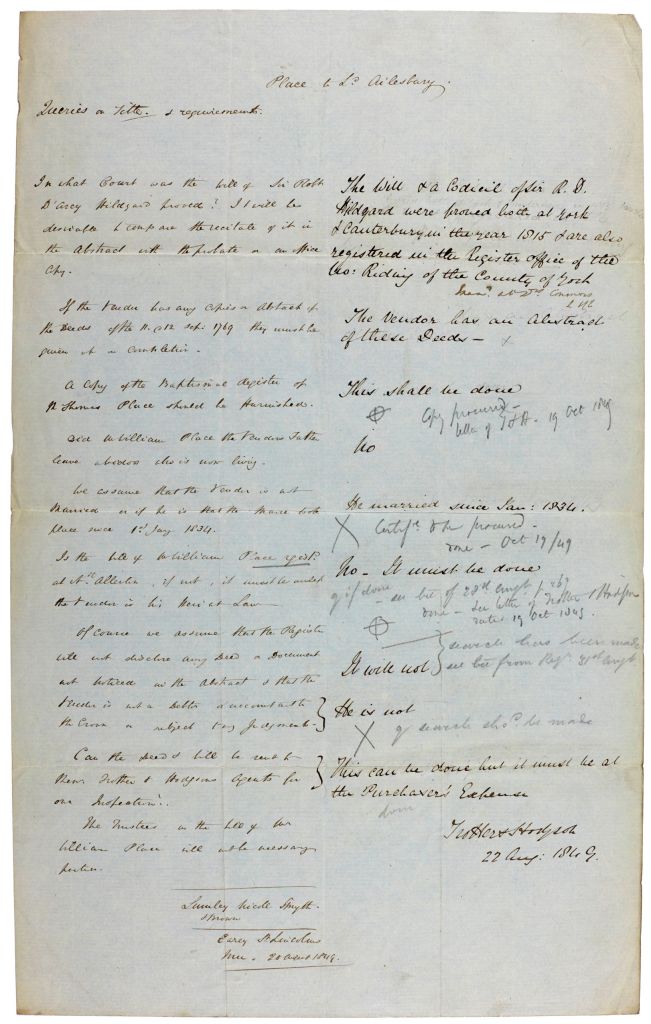 Place to Ld. Ailesbury.
Queries on Title & requirements.
In what Court was the will of Sir Robt
D'arcy Hildyard proved? It will be
desirable to compare the recitals of it in
the Abstract with the probate or an office
Copy.
The Will & a Codicil of Sir R. D.
Hildyard were proved both at York
& Canterbury in the year 1815 & are also
registered in the Register office of the
No: Riding of the County of York
If the Vendor has any Copies or Abstract of
the Deeds of the 11 & 12 Sepr. 1769 they must be
given up on completion.
The Vendor has an Abstract
of these Deeds —
A Copy of the Baptismal Register of
Mr Thomas Place should be furnished.
This shall be done
Copy procured —
letter of T & H. 19 Oct 1849
Did Mr William Place the Vendors Father
leave a widow who is now living.
No
We assume that the Vendor is not
Married or if he is that the Marre took
place since 1st Jany 1834.
He married since Jan: 1834.
Certife. to be procured —
done — Oct 19/49
Is the Will of Mr William Place regist
at Nth Allerton, if not, it must be unless
the Vendor is his Heir at Law
No — It must be done
q if done — see letter of 23rd Augt
done — see letter of Trotter & Hodgson
dated 19 Oct 1849.
Of course we assume that the Register
will not disclose any Deed or Document
not noticed in the Abstract & that the
Vendor is not a debtor or accountant to
the Crown or subject to any Judgment.
It will not
search has been made
see letter from Regr. 31st Augt
He is not
q search shod. be made
Can the Deeds & Will be sent to
Messrs. Trotter & Hodgsons Agents for
our Inspection.
This can be done but it must be at
the Purchaser's Expense
done
The Trustees in the Will of Mr
William Place will not be necessary
parties.
Trotter & Hodgson
22 Aug: 1849.
Lumley Nicoll Smyth
& Brown
Carey St Lincolns
Inn. 20 Augt 1849.